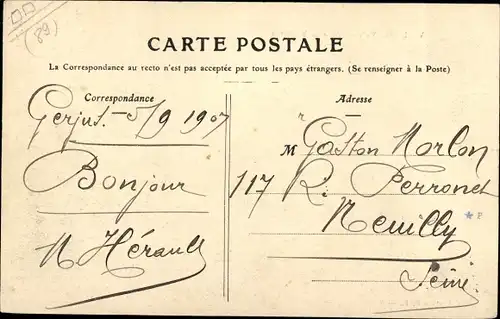 (89)
CARTE POSTALE
La Correspondance au recto n'est pas acceptée par tous les pays étrangers. (Se renseigner à la Poste)
Correspondance
5/9 1907
Bonjour
N Hérault
Adresse
M Gaston Morlon
117 R. Perronet
Neuilly
Seine